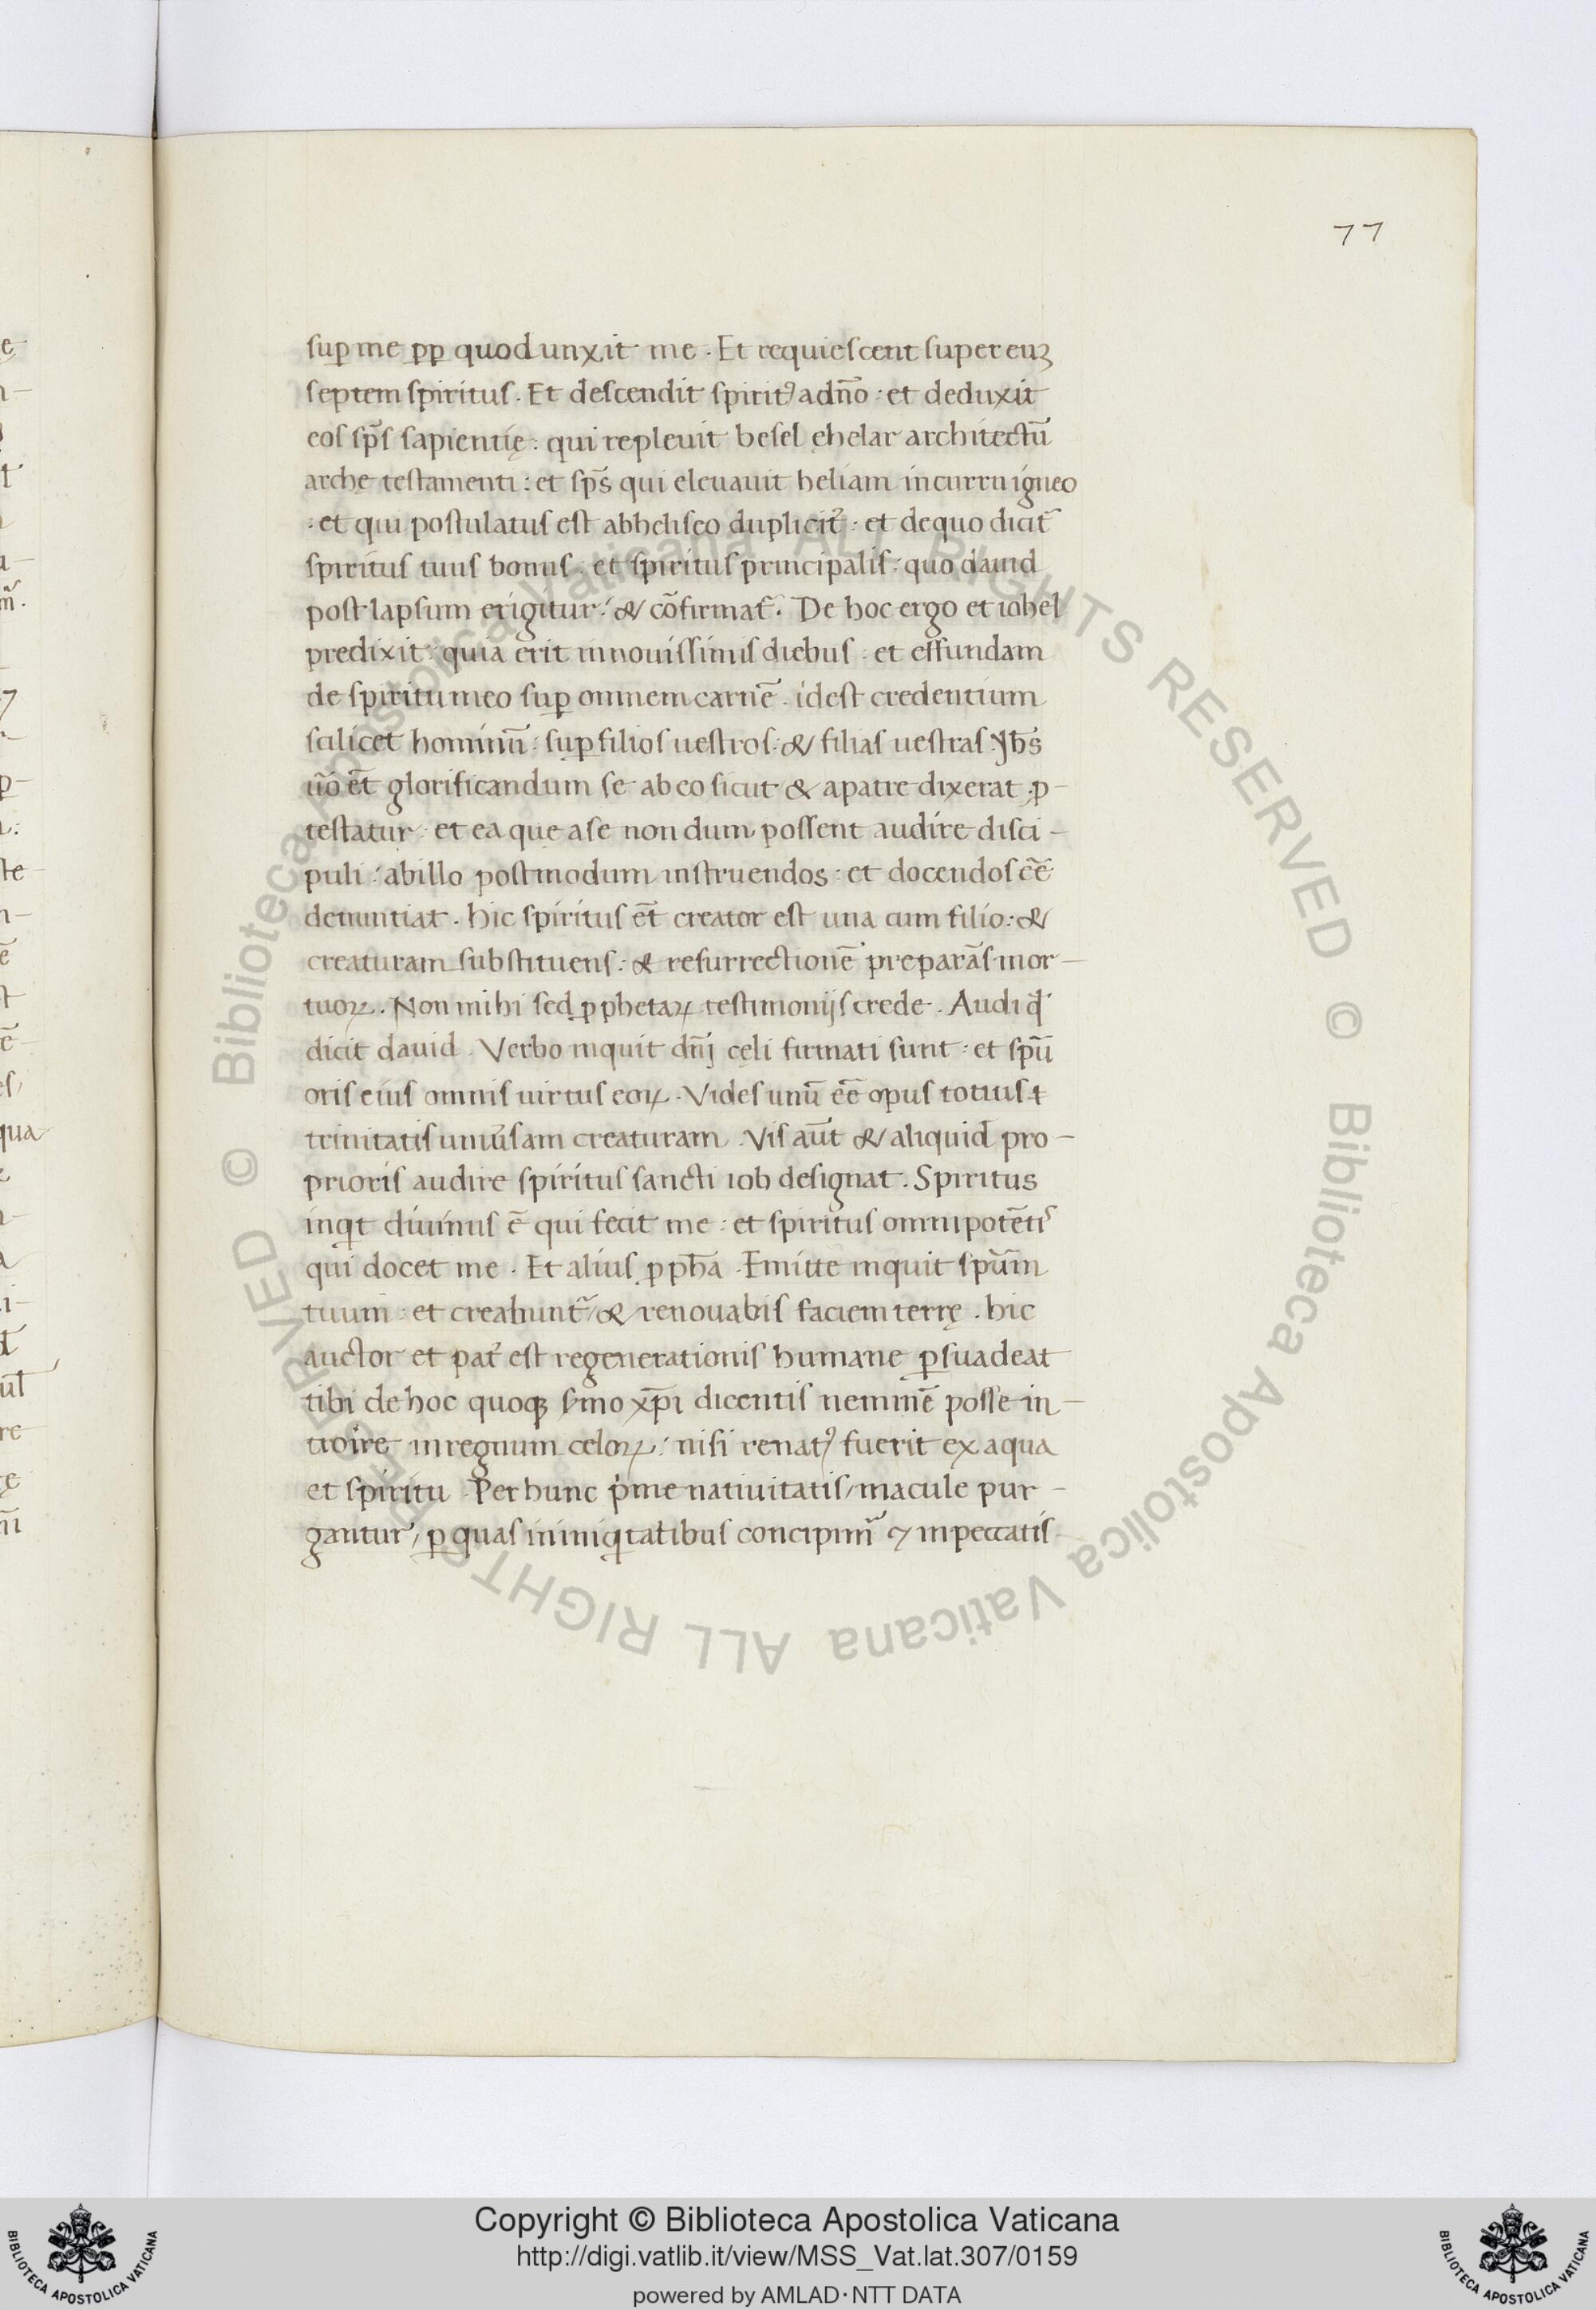 77
sup me pp quod unxit me . Et requiescent super euz
septem spiritus . Et descendit spirit9 a dno : et deduxit
eos sps sapientię : qui repleuit besel ehelar architectū
archę testamenti : et sps qui eleuauit heliam in curru igneo
: et qui postulatus est ab heliseo duplicit : et de quo dicit
spiritus tuus bonus : et spiritus principalis : quo dauid
post lapsum erigitur : & cōfirmat . De hoc ergo et iohel
predixit : quia erit in nouissimis diebus : et effundam
de spiritu meo sup omnem carnē . idest credentium
scilicet hominū : sup filios uestros : & filias uestras yhs
uō et glorificandum se ab eo sicut & a patre dixerat : p-
testatur : et ea que a se non dum possent audire disci-
puli : ab illo postmodum instruendos : et docendos eē
denuntiat . hic spiritus et creator est una cum filio : &
creaturam substituens : & resurrectionē preparās mor-
tuoꝝ . Non mihi sed pphetaꝝ testimonijs crede . Audi qd
dicit dauid . Verbo inquit dnj cęli firmati sunt : et spū
oris eius omnis uirtus eoꝝ . Vides unū eē opus totius
trinitatis uniusam creaturam . Vis aut & aliquid pro-
prioris audire spiritus sancti iob designat . Spiritus
inqt diuinus ē qui fecit me : et spiritus omnipotēti
qui docet me . Et alius ppha . Emitte inquit spum
tuum : et creabunt / & renouabis faciem terrę . hic
auctor et pat est regenerationis humane psuadeat
tibi de hoc quoqꝫ smo xpi dicentis neminē posse in-
troire in regnum celoꝝ : nisi renat9 fuerit ex aqua
et spiritu . Per hunc pme natiuitatis / macule pur-
gantur / p quas in iniqtatibus concipim & in peccatis
Copyright © Biblioteca Apostolica Vaticana
http://digi.vatlib.it/view/MSS_Vat.lat.307/0159
powered by AMLAD·NTT DATA